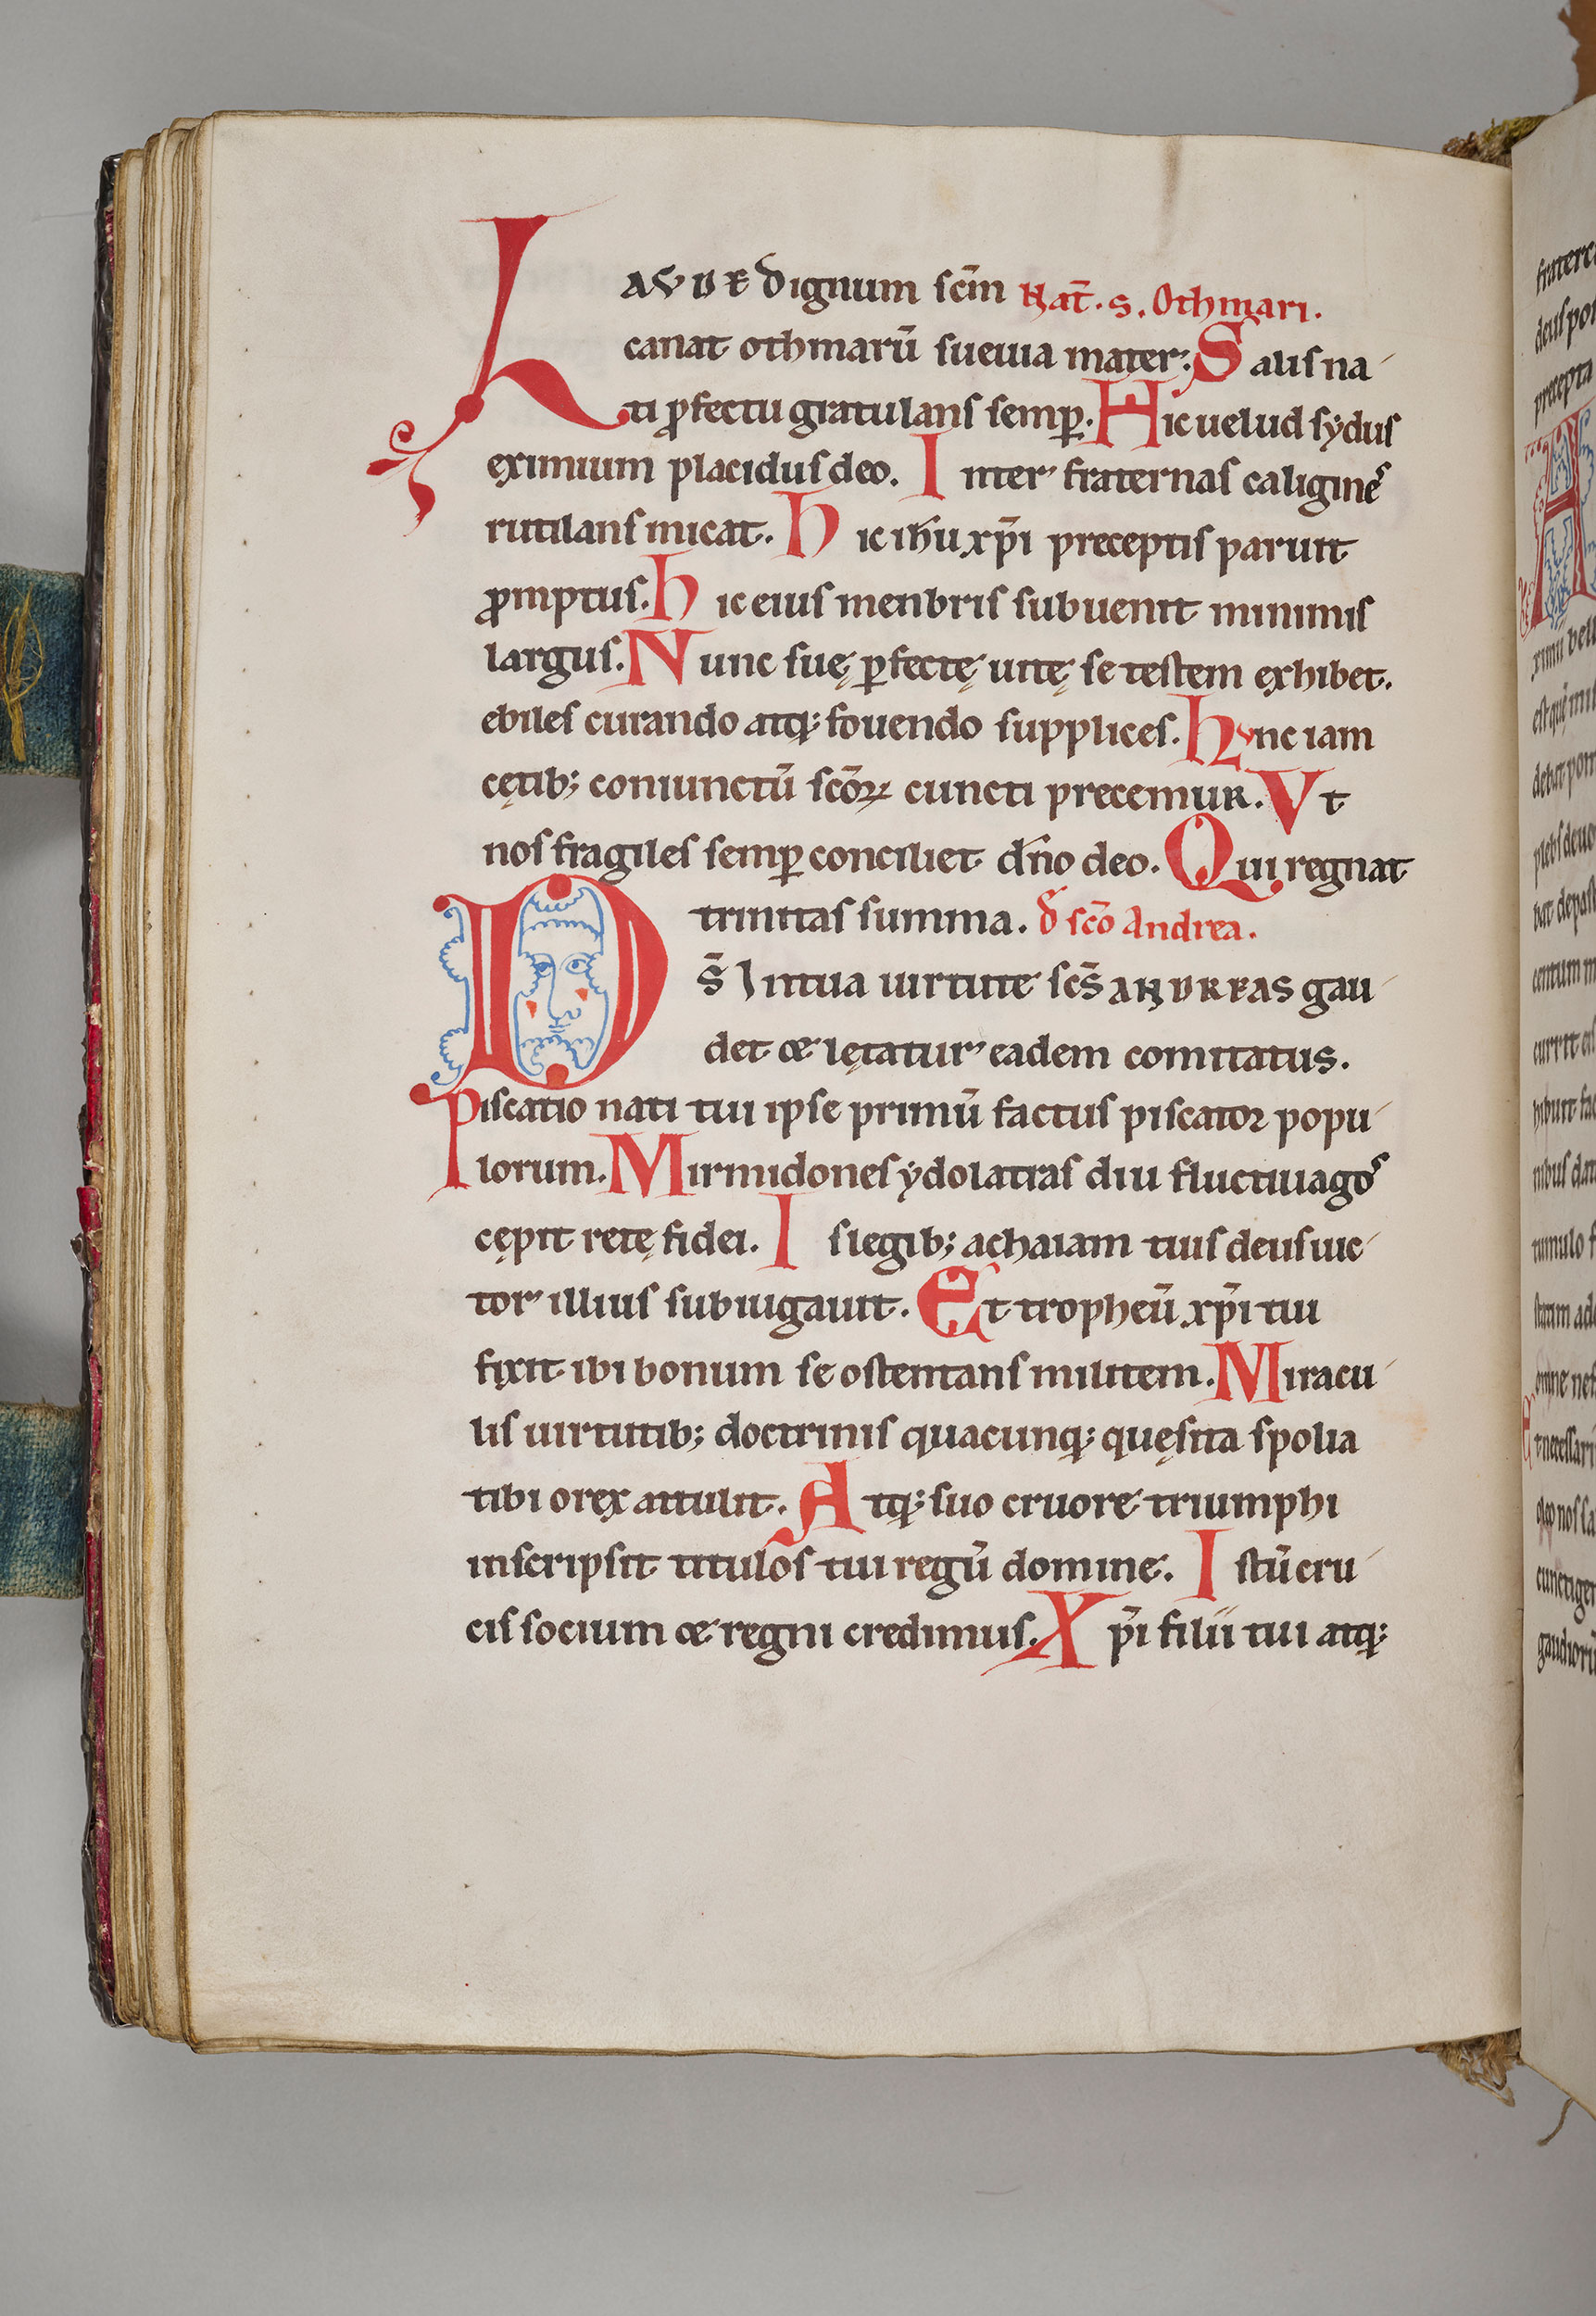 LAVDE Dignum scm̄ Nat̄. S. Othmari.
canat othmarū sueuia mater: Salis na
ti ꝓfectu gratulans semꝑ. Hic uelud sẏdus
eximium placidus deo. Inter fraternas caligines
rutilans micat. Hic ihu xp̄i preceptis paruit
ꝓmptus. Hic eius menbris subuenit minimis
largus. Nunc suę ꝑfectę uitę se testem exhibet.
ebiles curando atq; fouendo supplices. Hunc iam
cętib; coniunctū scōꝝ cuncti precemur. Vt
nos fragiles semꝑ conciliet dn̄o deo. Qui regnat
trinitas summa. D̄ scō Andrea.
DS̄ In tua uirtute scs̄ ANDREAS gau
det & lętatur eadem comitatus.
Piscatio nati tui ipse primū factus piscator popu
lorum. Mirmidones ẏdolatras diu fluctiuagos
cępit retę fidei. I s legib; achaiam tuis deus uic
tor illius subiugauit. Et tropheū xp̄i tui
fixit ibi bonum se ostentans militem. Miracu
lis uirtutib; doctrinis quacunq; quęsita spolia
tibi o rex attulit. Atq; suo cruore triumphi
inscripsit titulos tui regū domine. Istū cru
cis socium & regni credimus. Xp̄i filii tui atq;